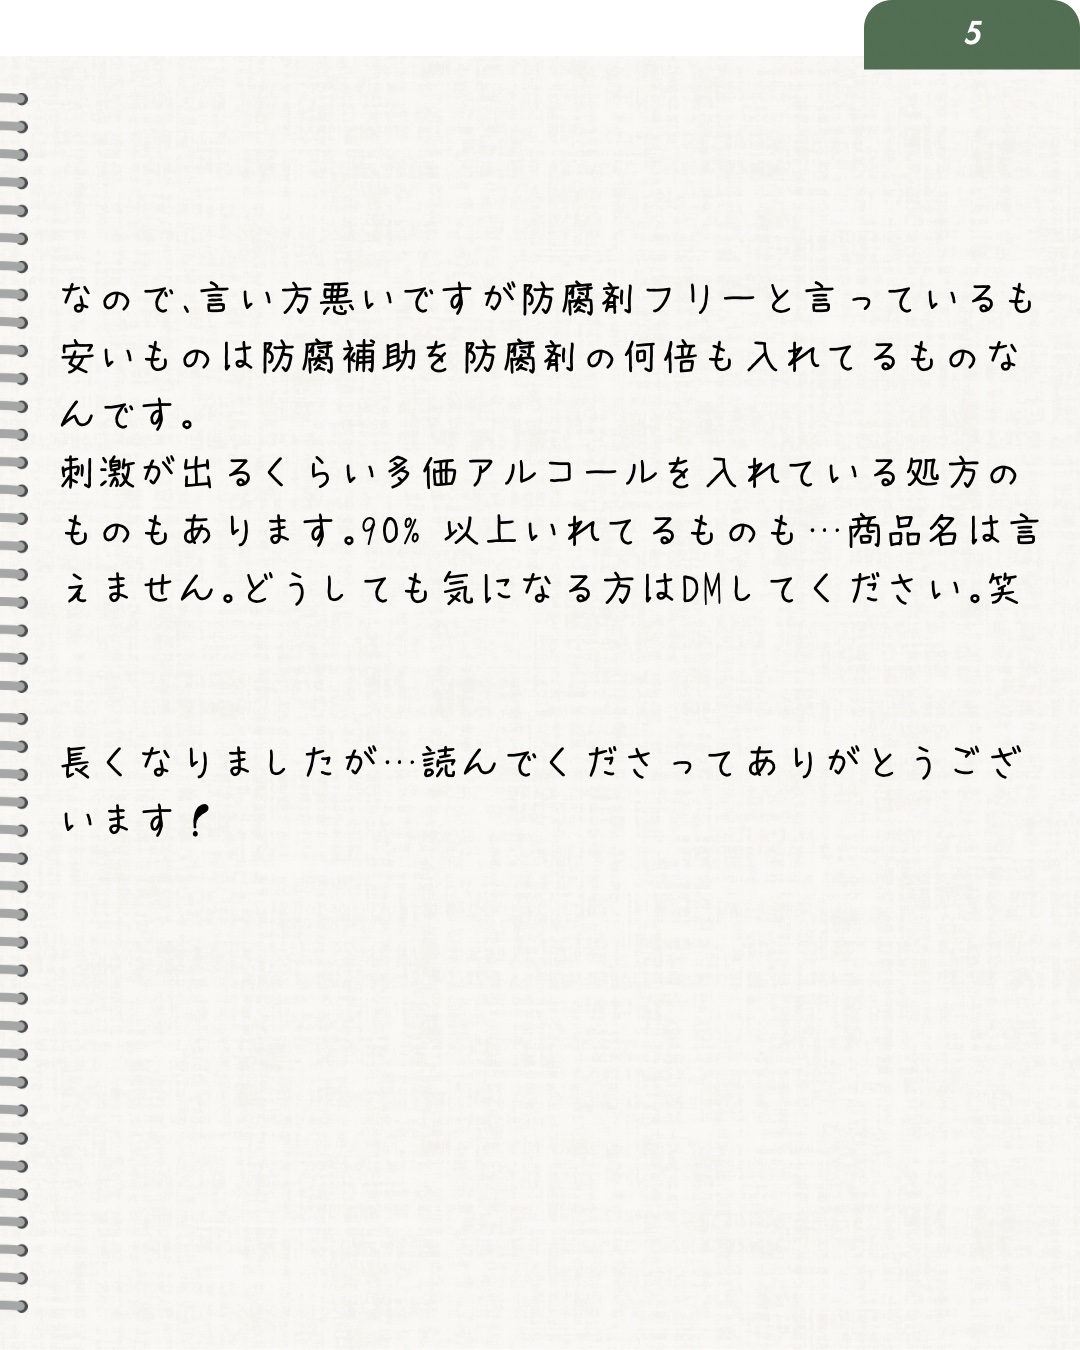 5
なので、言い方悪いですが防腐剤フリーと言っているも
安いものは防腐補助を防腐剤の何倍も入れてるものな
んです。
刺激が出るくらい多価アルコールを入れている処方の
ものもあります。90% 以上いれてるものも…商品名は言
えません。どうしても気になる方はDMしてください。笑
長くなりましたが…読んでくださってありがとうござ
います！